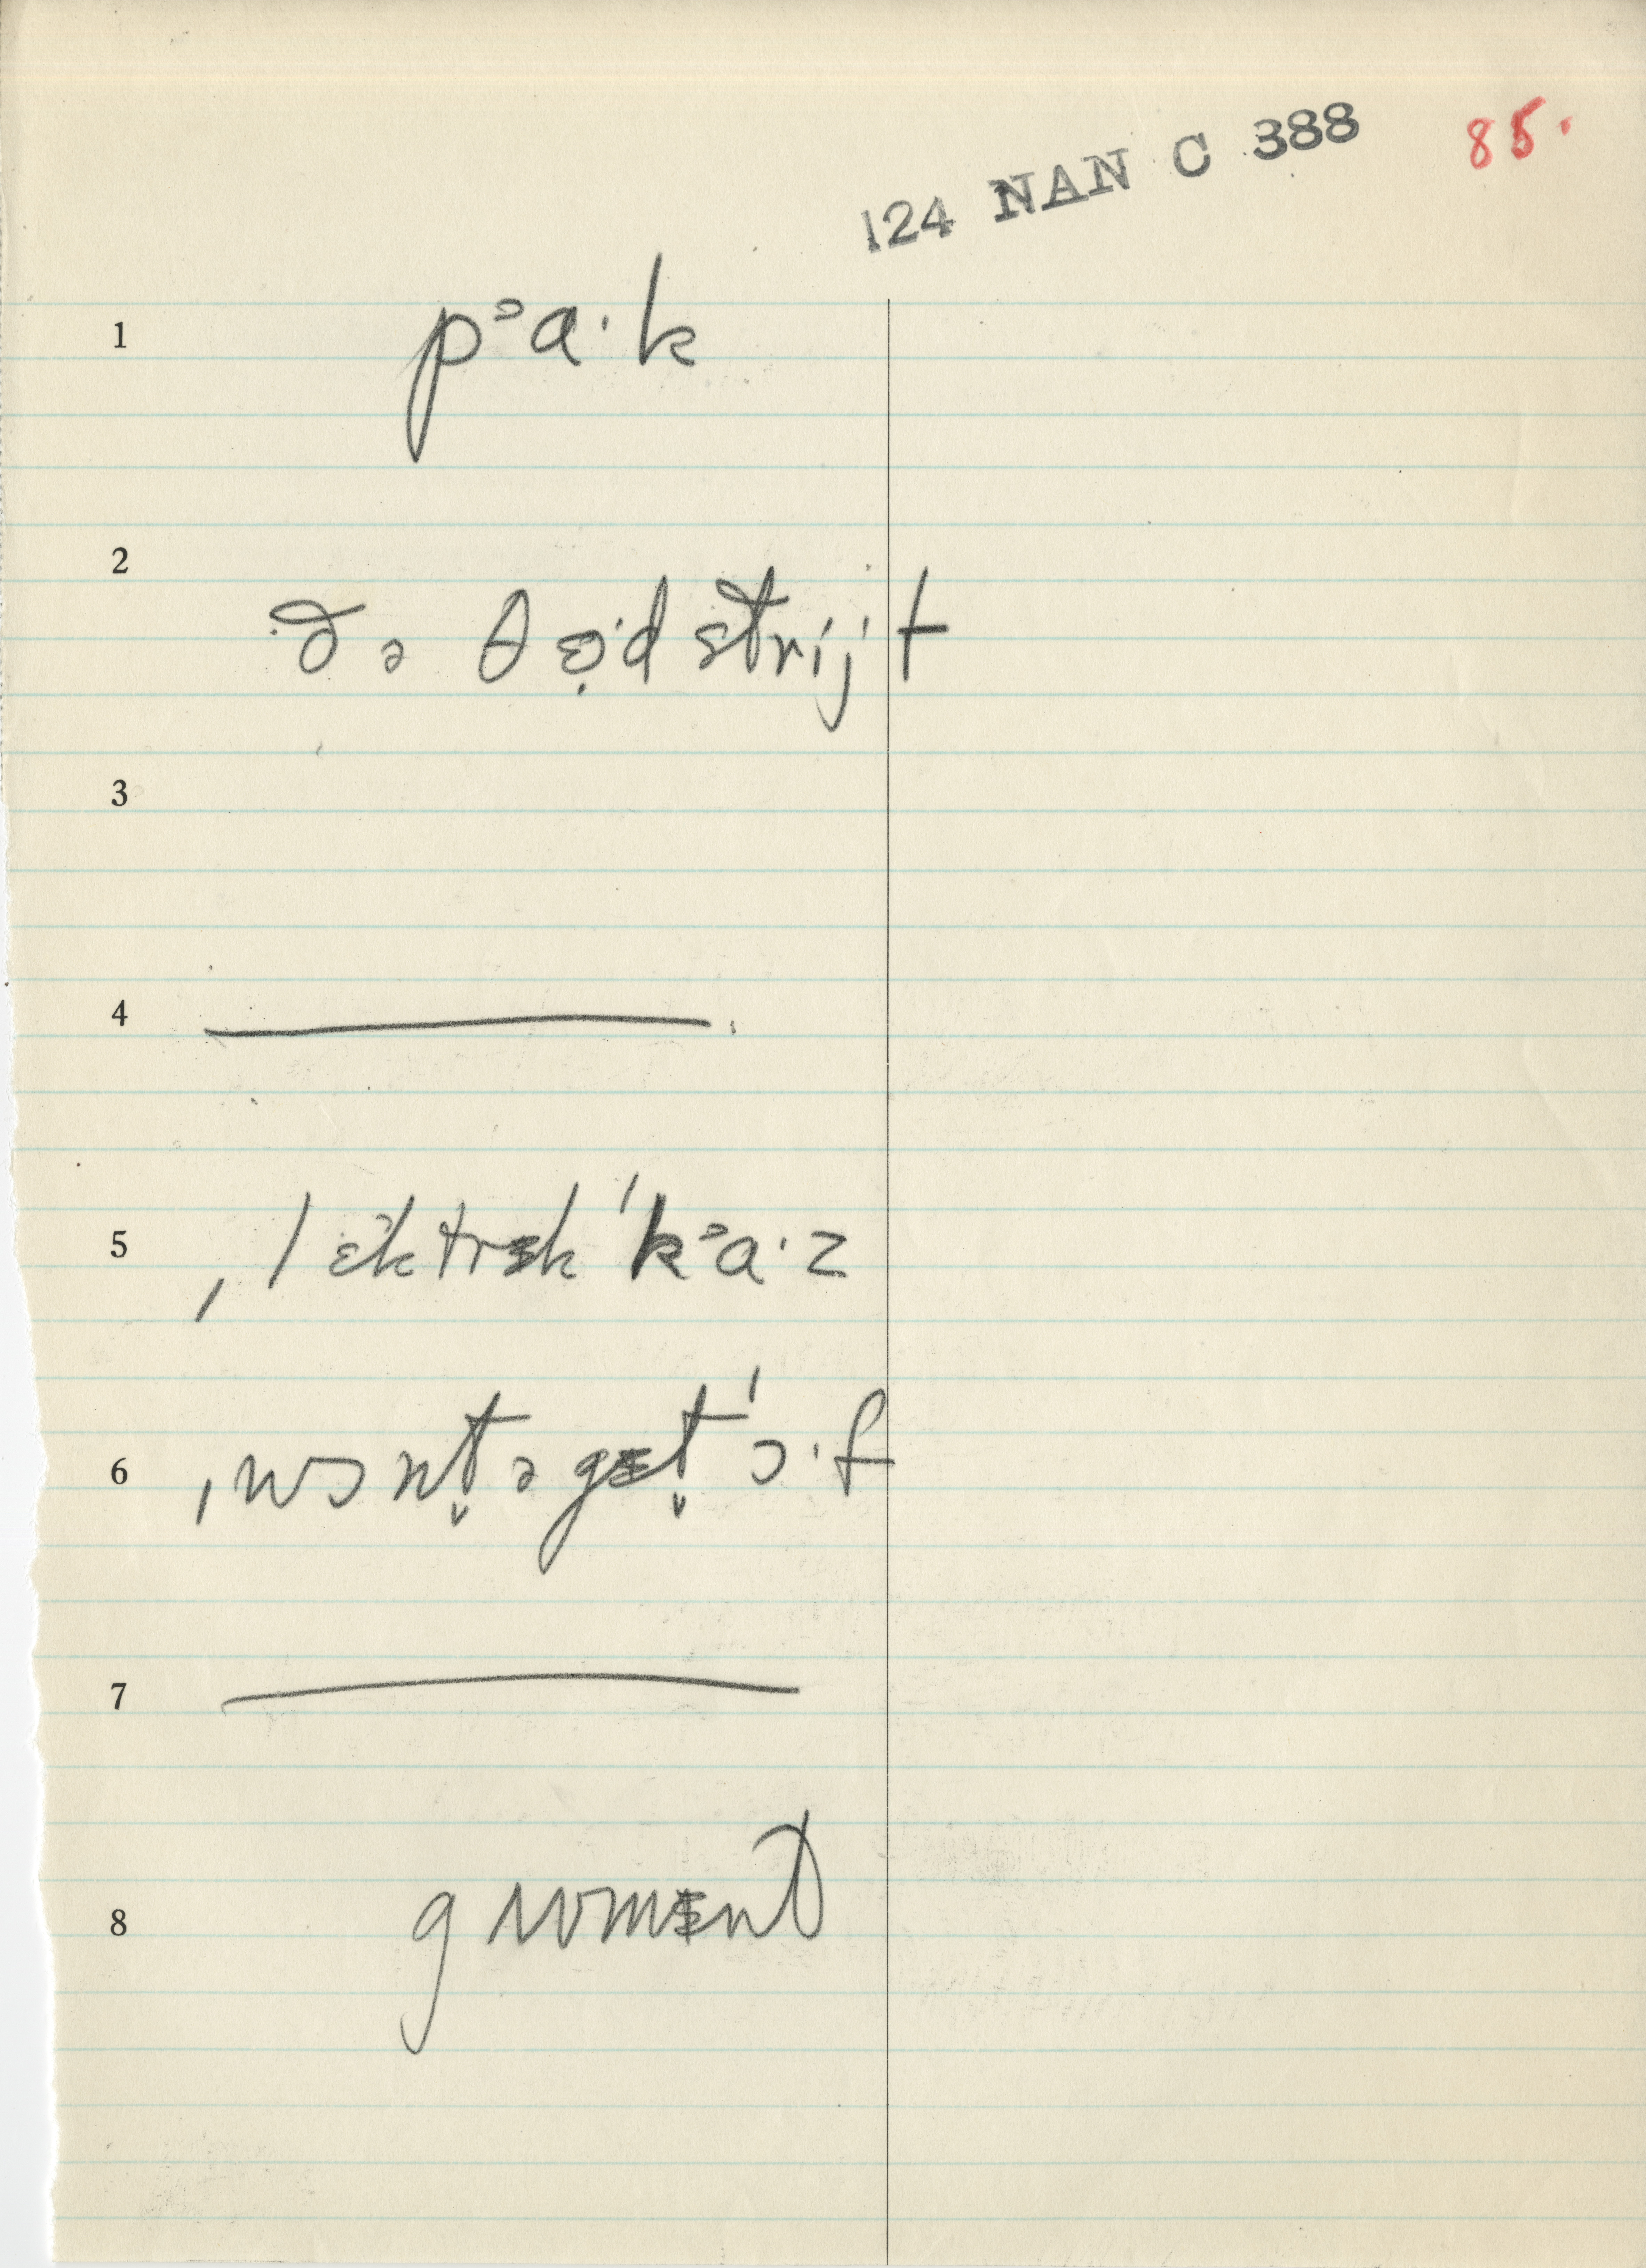 124 NAN C 388 85.
1 pᵓa·k
2 ðə θɵ̣·d strij·t
3
4
5 ˌlɛktrɪkˈkᵓa·z
6 ˌwɔnt̬əgɪt̬ˈɔ·f
7
8